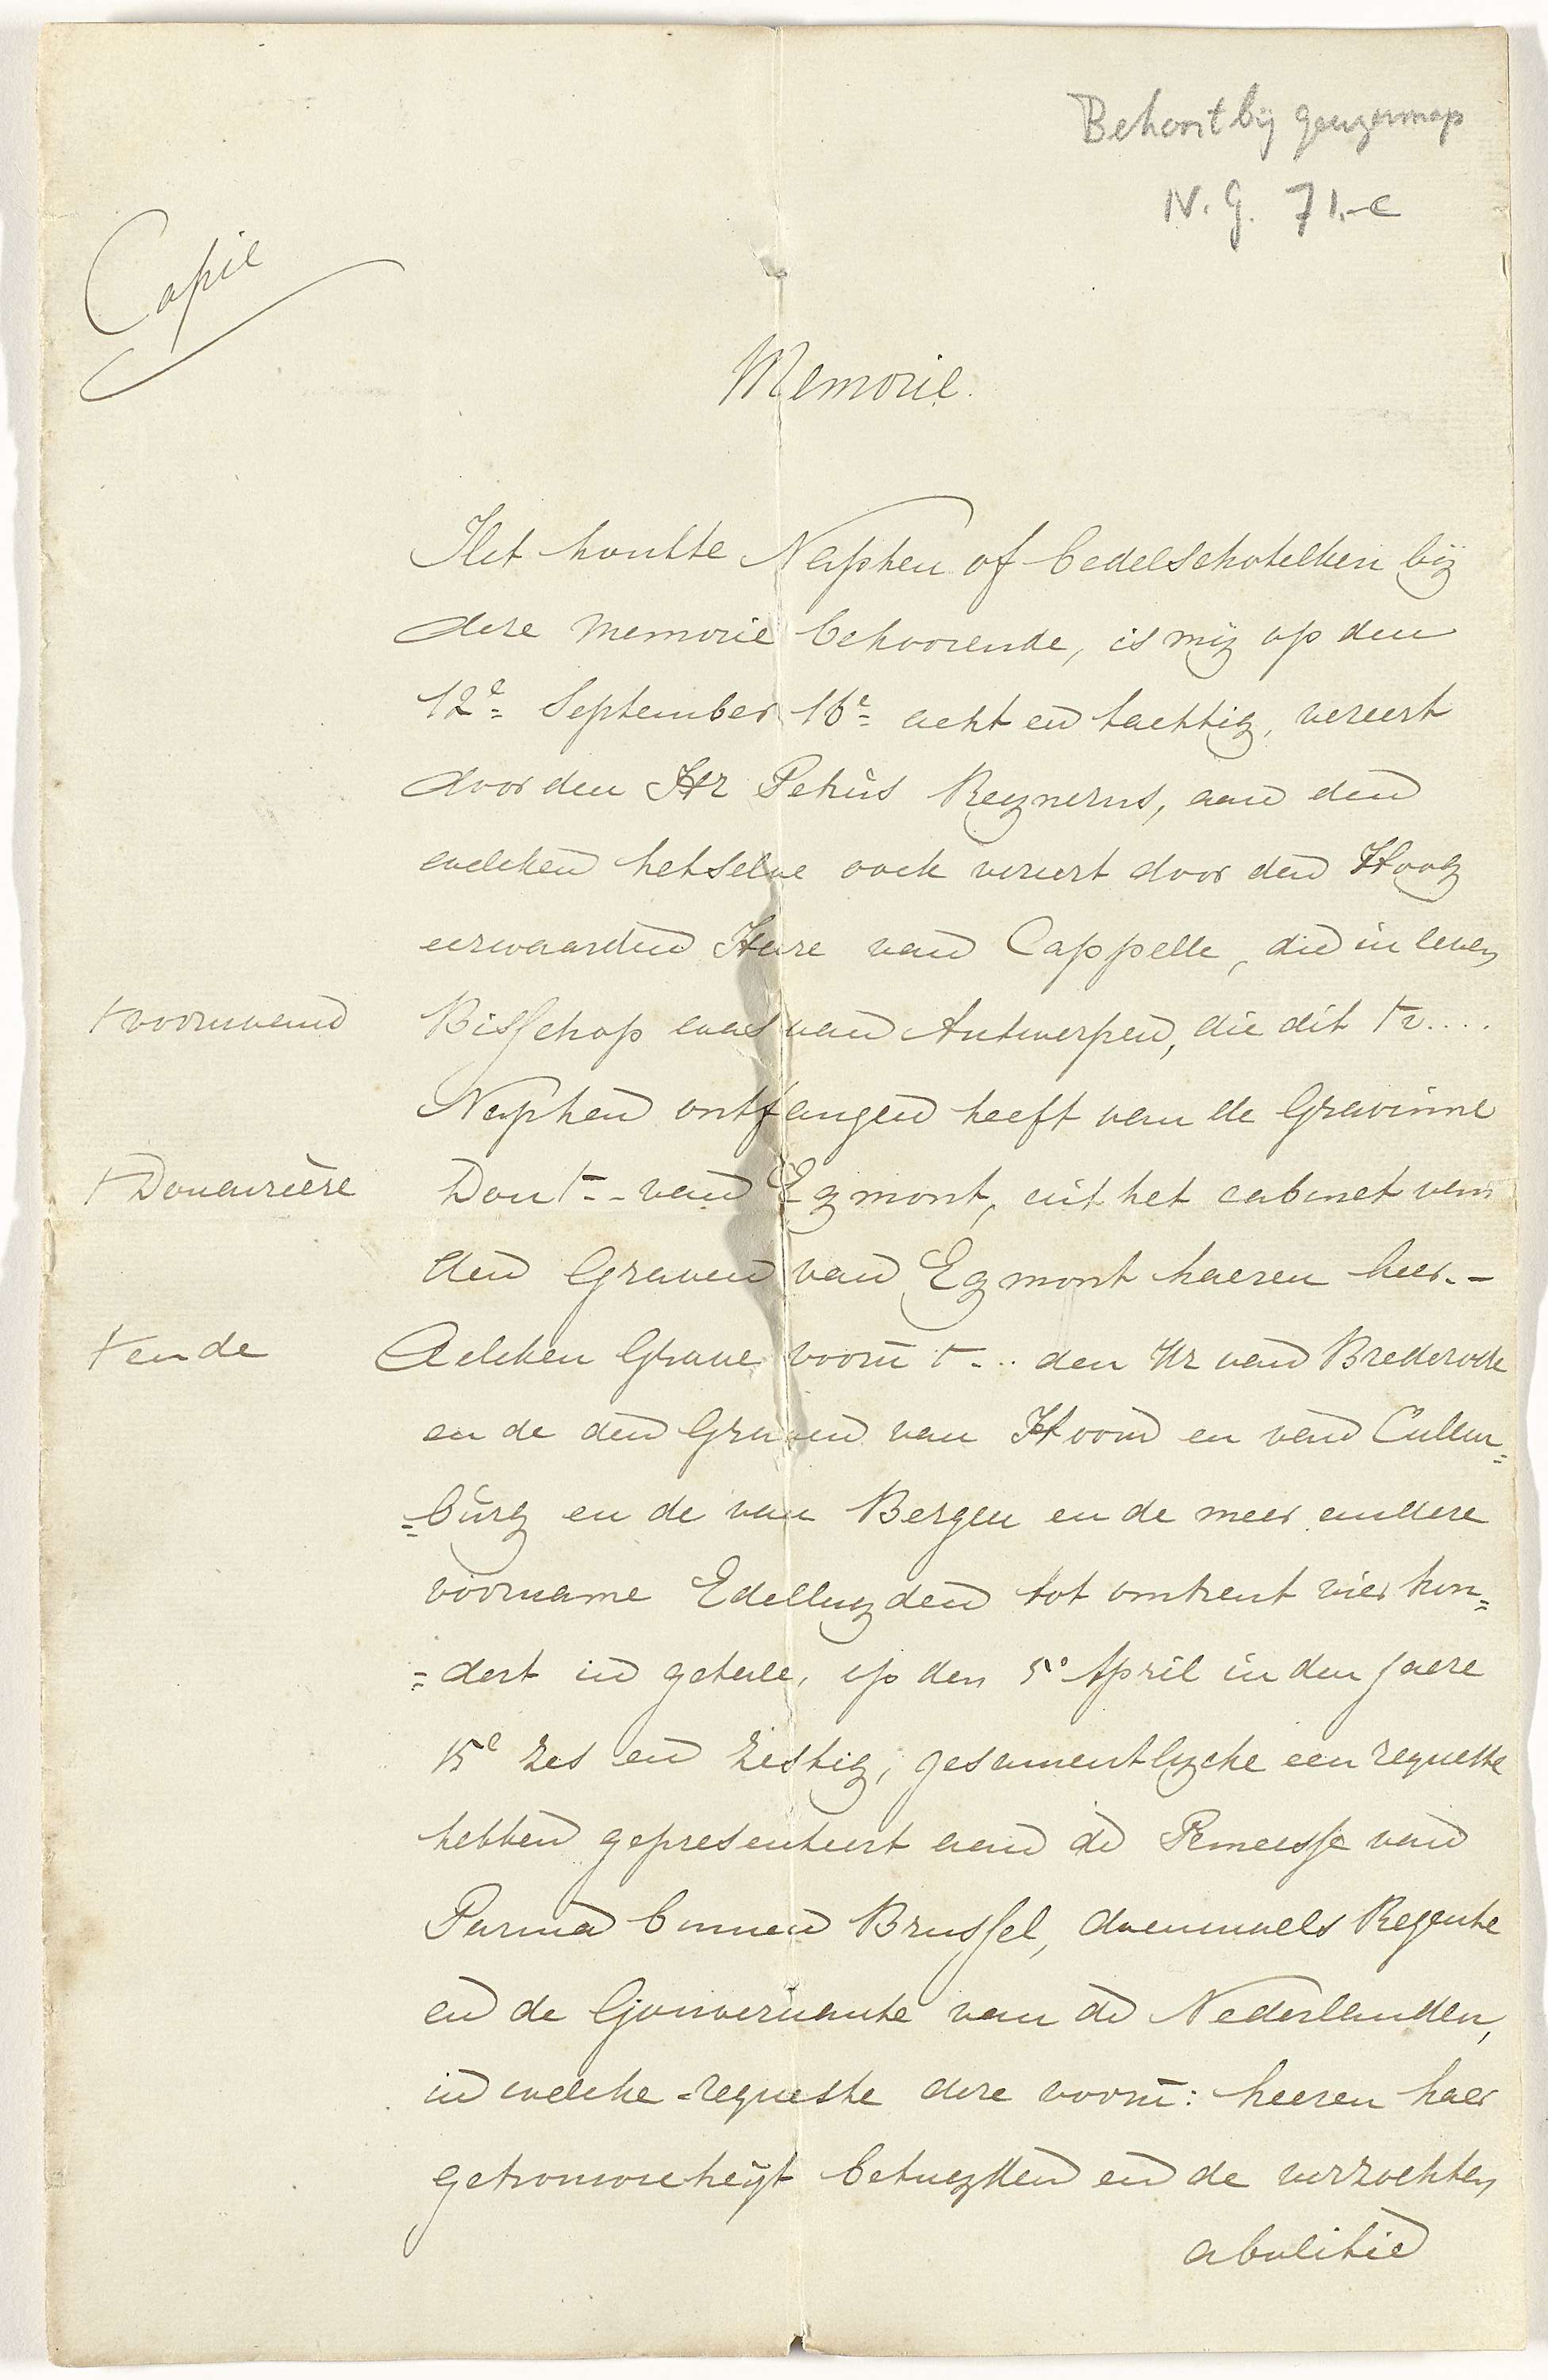 Behoort bij geuzennap
N.G. 71.-c
Copie
Memorie.
Het houtte Napken of bedelschotelken bij
dese memorie behoorende, is mij op den
12e= September 16e= acht en tachtig, vereert
door den Hr Petrus Reynerus, aan den
welcken hetselve oock vereert door den Hoog
eerwaarden Heere van Cappelle, die in leven
† voornaamd
Bisschop was van Antwerpen, die dit † v....
Napken ontfangen heeft van de Gravinne
† Douairière
Dou †-- van Egmont, uit het cabinet van
den Graven van Egmont haeren heer.-
† ende
Welcken Grave voorn̄ †-.. den Hr van Brederode
en de den Graven van Hoorn en van Culem=
=burg en de van Bergen en de meer andere
voorname Edelluyden tot omtrent vier hon=
=dert in getale, op den 5e April in den jaere
15e zes en zestig, gesamentlycke een requeste
hebben gepresenteert aan de Princesse van
Parma binnen Brussel, doenmaels Regente
en de Gouvernante van de Nederlanden,
in welcke requeste dese voorn̄: heeren haer
getrouwicheijt betuygden en de verzochten
abolitie